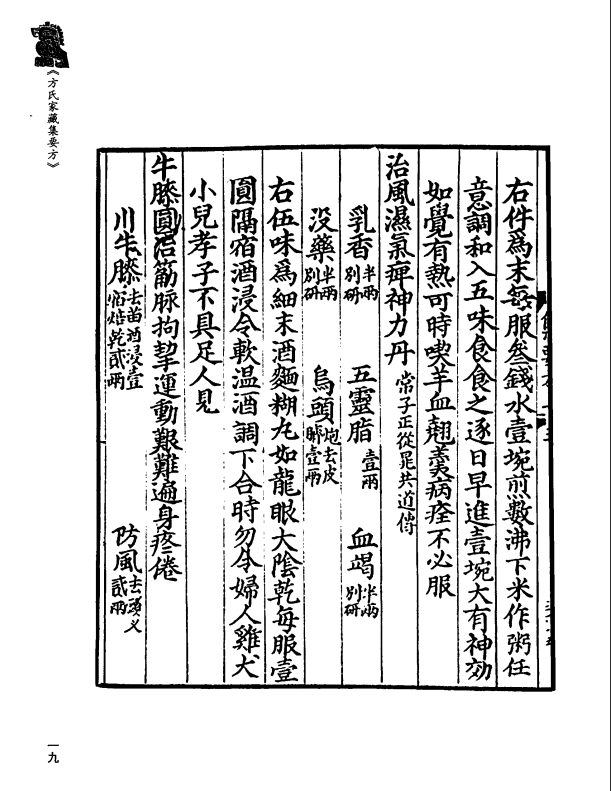 《方氏家藏集要方》
右件爲末每服叁錢水壹埦煎數沸下米作粥任
意調和入五味食食之逐日早進壹埦大有神效
如覺有熱可時喫羊血翹羹病痊不必服
治風濕氣痺神力丹 常子正從晁共道傳
乳香 半兩別研 五靈脂 壹兩 血竭 半兩別研
没藥 半兩別研 烏頭 炮去皮臍壹兩
右伍味爲細末酒麵糊丸如龍眼大陰乾每服壹
圓隔宿酒浸令軟温酒調下合時勿令婦人雞犬
小兒孝子不具足人見
牛膝圓治筋脉拘挛運動艱難遍身疼倦
川牛膝 去苗酒浸壹宿焙乾貳兩 防風 去頭义貳兩
一九